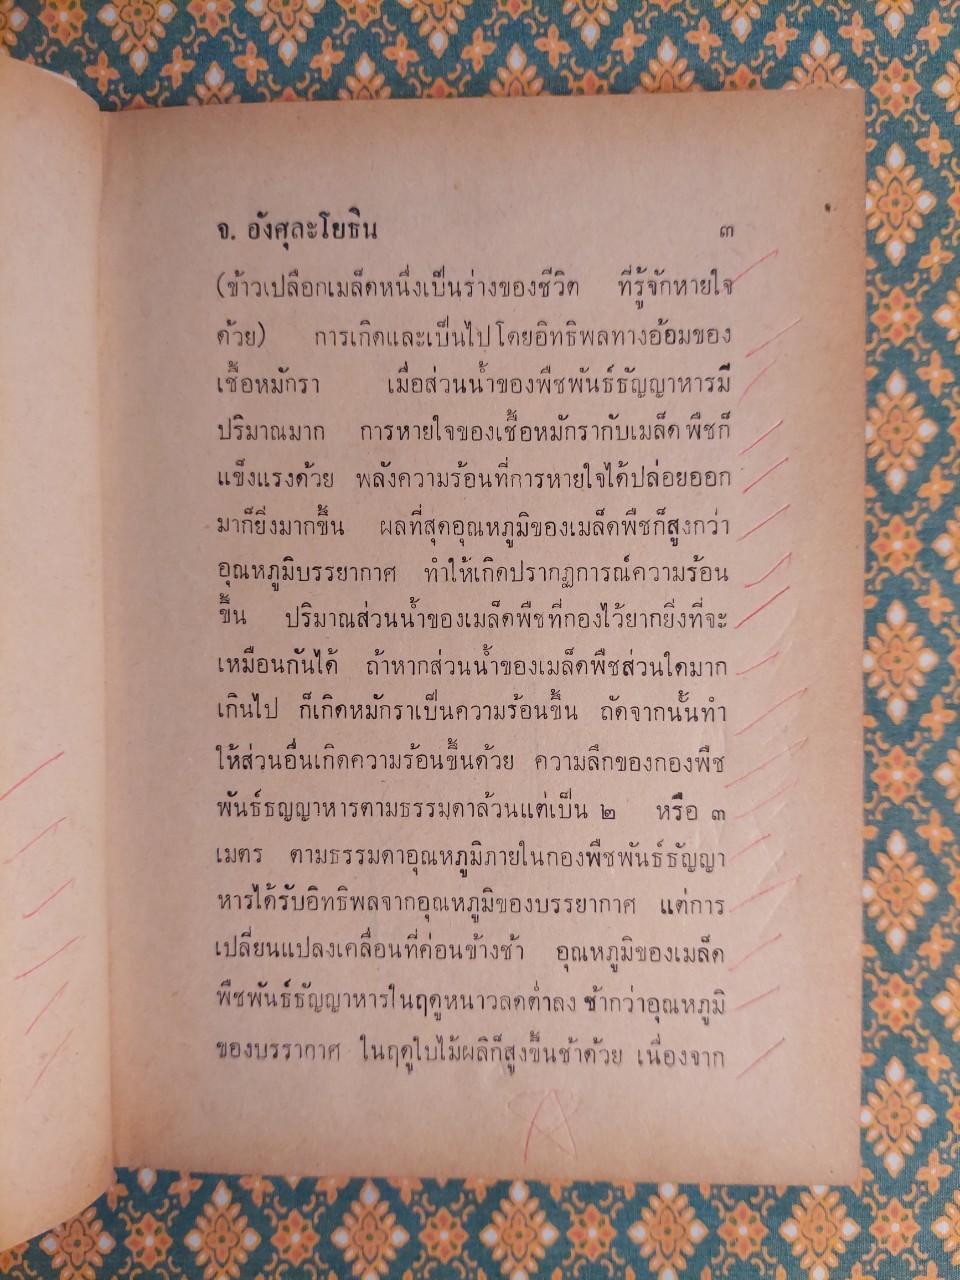 จ. อังศุละโยธิน ๓
(ข้าวเปลือกเมล็ดหนึ่งเป็นร่างของชีวิต ที่รู้จักหายใจ
ด้วย) การเกิดและเป็นไปโดยอิทธิพลทางอ้อมของ
เชื้อหมักรา เมื่อส่วนน้ำของพืชพันธ์ธัญญาหารมี
ปริมาณมาก การหายใจของเชื้อหมักรากับเมล็ดพืชก็
แข็งแรงด้วย พลังความร้อนที่การหายใจได้ปล่อยออก
มาก็ยิ่งมากขึ้น ผลที่สุดอุณหภูมิของเมล็ดพืชก็สูงกว่า
อุณหภูมิบรรยากาศ ทำให้เกิดปรากฏการณ์ความร้อน
ขึ้น ปริมาณส่วนน้ำของเมล็ดพืชที่กองไว้ยากยิ่งที่จะ
เหมือนกันได้ ถ้าหากส่วนน้ำของเมล็ดพืชส่วนใดมาก
เกินไป ก็เกิดหมักราเป็นความร้อนขึ้น ถัดจากนั้นทำ
ให้ส่วนอื่นเกิดความร้อนขึ้นด้วย ความลึกของกองพืช
พันธ์ธญญาหารตามธรรมดาล้วนแต่เป็น ๒ หรือ ๓
เมตร ตามธรรมดาอุณหภูมิภายในกองพืชพันธ์ธัญญา
หารได้รับอิทธิพลจากอุณหภูมิของบรรยากาศ แต่การ
เปลี่ยนแปลงเคลื่อนที่ค่อนข้างช้า อุณหภูมิของเมล็ด
พืชพันธ์ธัญญาหารในฤดูหนาวลดต่ำลง ช้ากว่าอุณหภูมิ
ของบรรากาศ ในฤดูใบไม้ผลิก็สูงขึ้นช้าด้วย เนื่องจาก